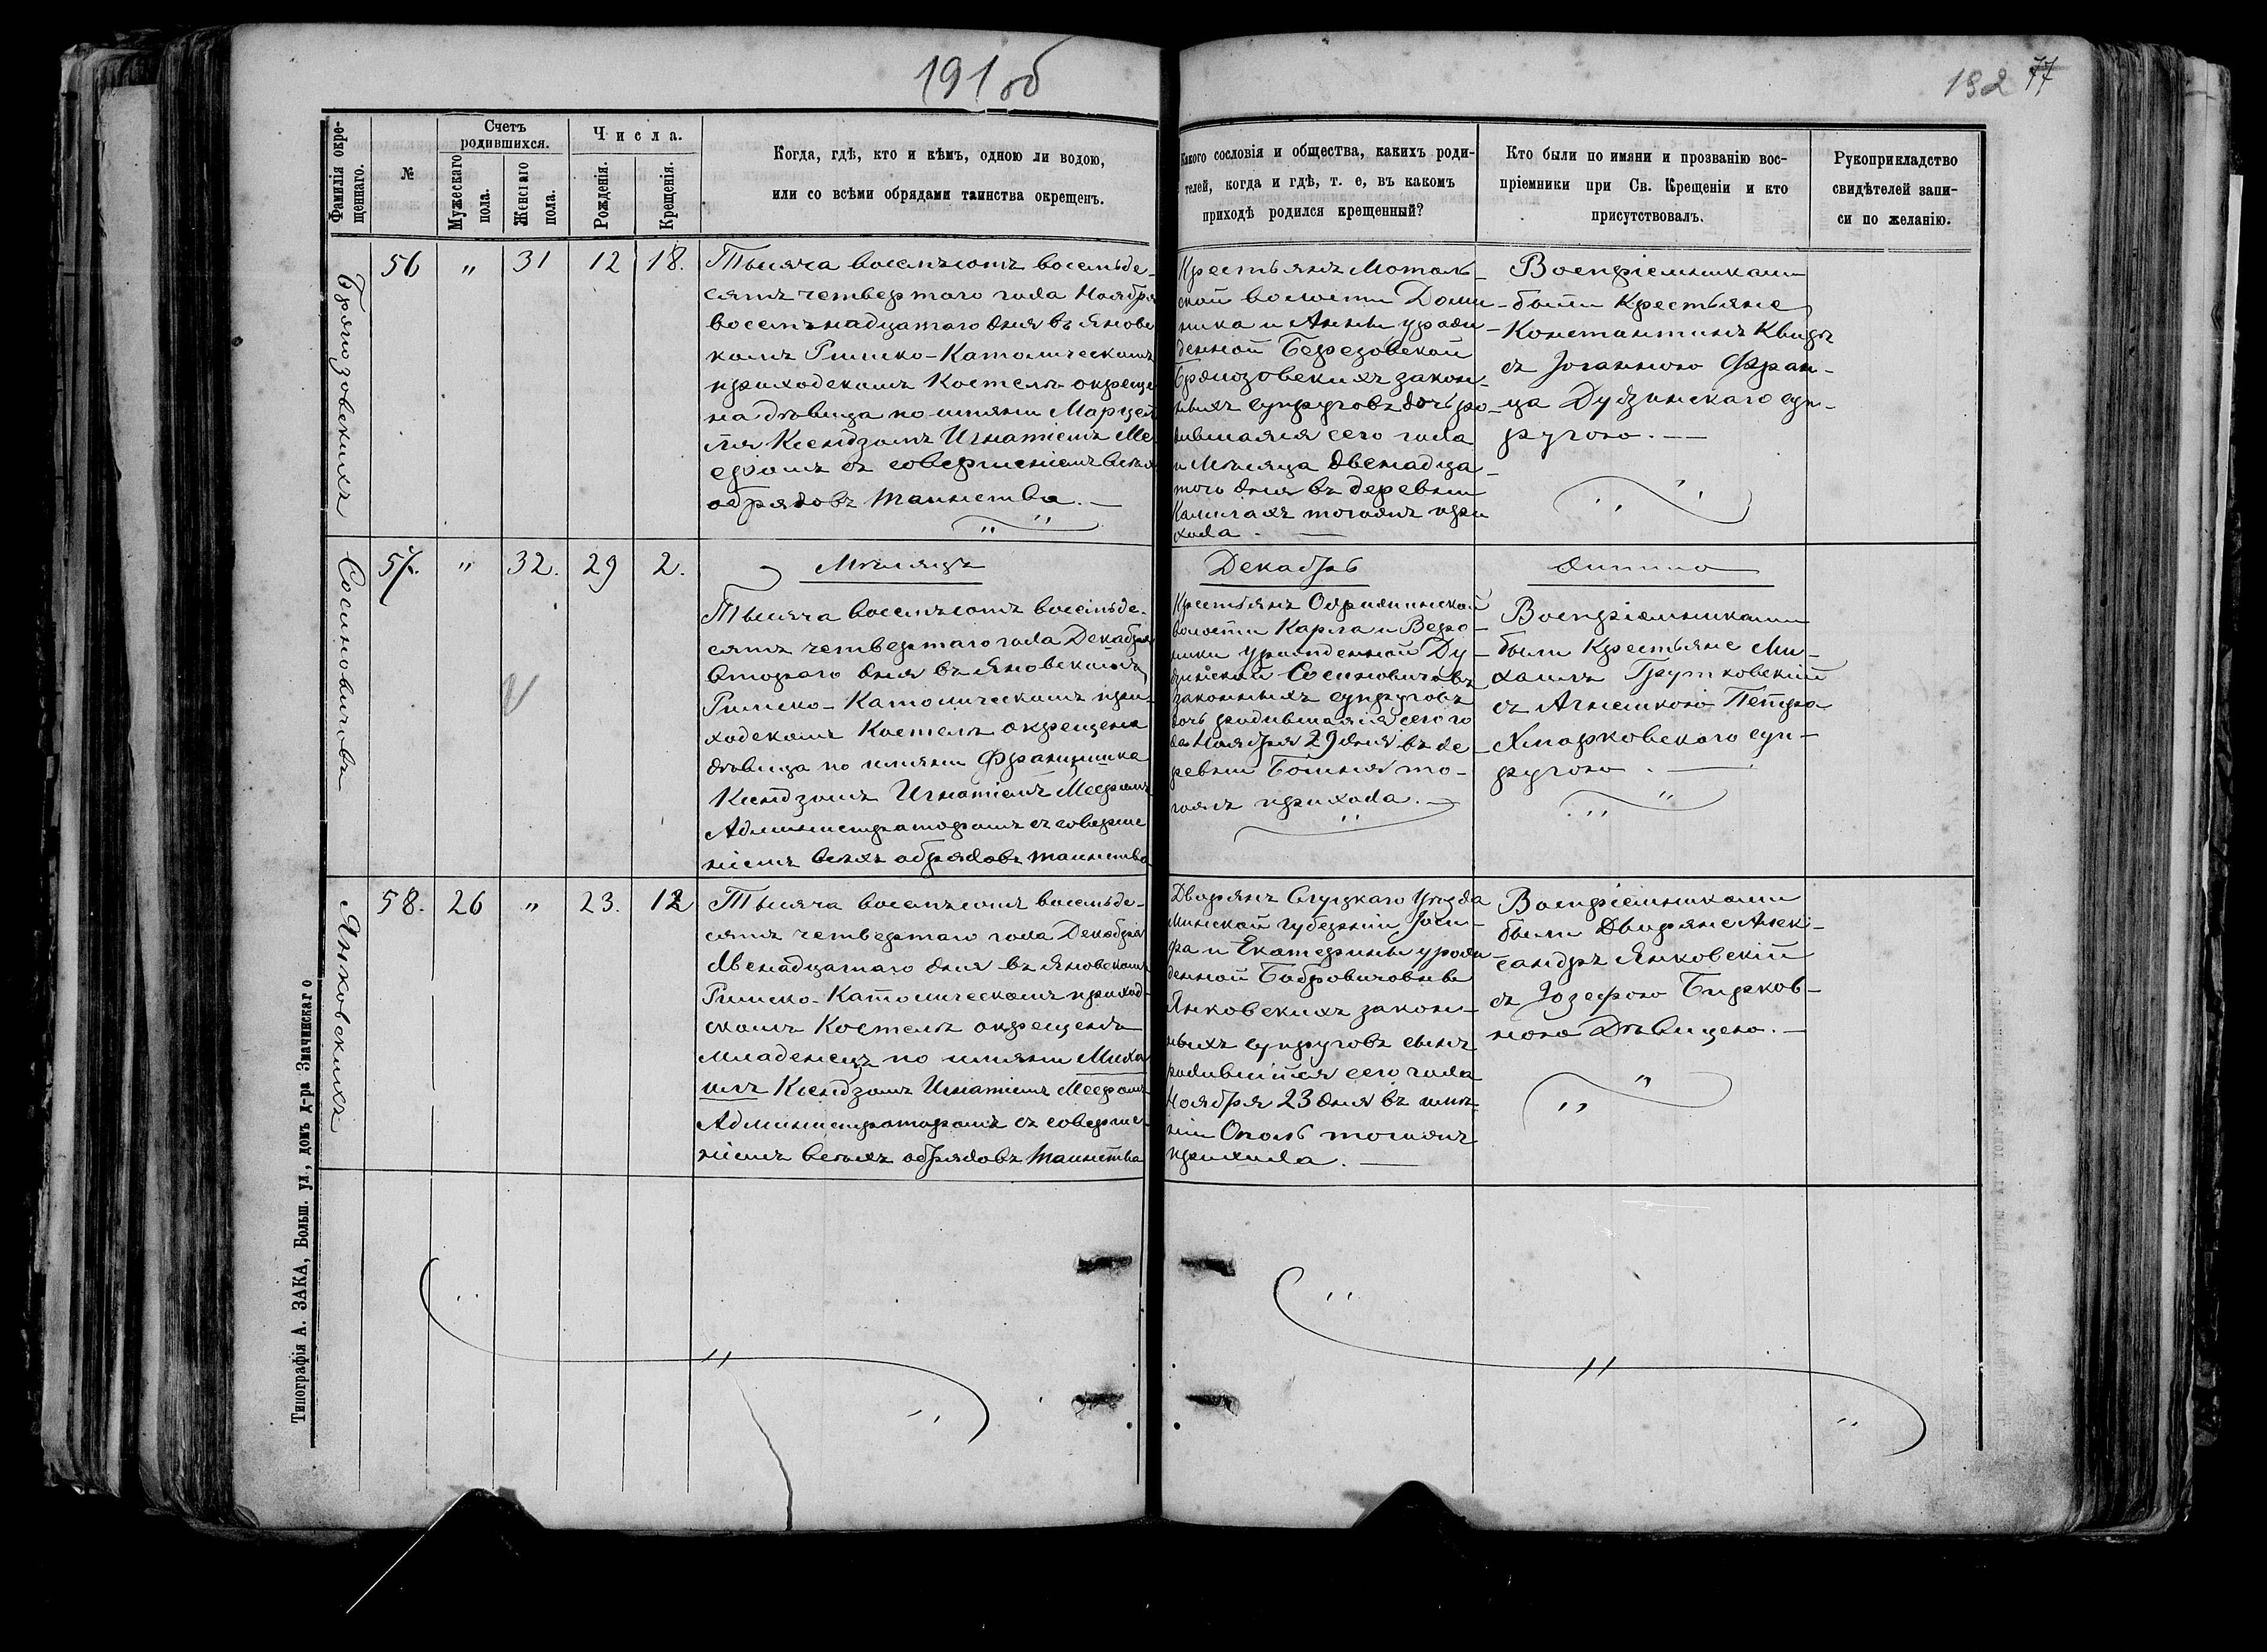 191 об
192 77
Фамилія окре-
щеннаго.
№
Счетъ
родившихся.
Мужескаго
пола.
Женскаго
пола.
Числа.
Рожденія.
Крещенія.
Когда, гдѣ, кто и кѣмъ, одною ли водою,
или со всѣми обрядами таинства окрещенъ.
Какого сословія и общества, какихъ роди-
телей, когда и гдѣ, т. е, въ какомъ
приходѣ родился крещенный?
Кто были по имяни и прозванію вос-
пріемники при Св. Крещеніи и кто
присутствовалъ.
Рукоприкладство
свидѣтелей запи-
си по желанію.
56 " 31 12 18.
Тысяча восемьсотъ восемьде-
сятъ четвертаго года Ноября
восемнадцатаго дня въ Яновс
комъ Римско-Католическомъ
приходскомъ Костелѣ окреще
на дѣвица по имяни Марцел
ля Ксендзомъ Игнатіемъ Ме
еромъ съ совершеніемъ всѣхъ
обрядовъ таинства. —
Крестьянъ Мотоль-
ской волости Доми-
ника и Анны урож
денной Березовской
законн-
ныхъ супруговъ дочь ро-
дившаяся сего года
и Мѣсяца двенадца-
того дня въ деревни
тогожъ при
хода. —
Воспріемниками
были Крестьяне
Константинъ
съ Іоганною Фран-
ца Дудзинскаго суп-
ругою. —
Сосиновичовъ
57. " 32. 29 2.
Мѣсяцъ
Декабрь
Тысяча восемьсотъ восемьде-
сятъ четвертаго года Декабря
втораго дня въ Яновскомъ
Римско-Католическомъ при-
ходскомъ Костелѣ окрещена
дѣвица по имяни Францишка
Ксендзомъ Игнатіемъ Мееромъ
Администраторомъ съ соверше
ніемъ всѣхъ обрядовъ таинства
Крестьянъ
волости Карла и Веро-
ники урожденной Ду-
дзинской Сосиновичовъ
законныхъ супруговъ
дочь родившаяся сего го
да Ноября 29 дня въ де-
ревни то-
гожъ прихода. —
Воспріемниками
были Крестьяне Ми-
хаилъ
съ Агнешкою Петра
Хмарковскаго суп-
ругою. —
Янковскихъ
58. 26 " 23. 12
Тысяча восемьсотъ восемьде-
сятъ четвертаго года Декабря
двенадцатаго дня въ Яновскомъ
Римско-Католическомъ приход-
скомъ Костелѣ окрещенъ
младенецъ по имяни Миха
илъ Ксендзомъ Игнатіемъ Мееромъ
Администраторомъ съ соверше-
ніемъ всѣхъ обрядовъ таинства
Дворянъ Слуцкаго Уѣзда
Минской губерніи Іоси-
фа и Екатерины урож
денной Бобровичовны
Янковскихъ закон-
ныхъ супруговъ сынъ
родившійся сего года
Ноября 23 дня въ имѣ-
ніи Ополь тогожъ
прихода. —
Воспріемниками
были Дворяне Алек-
сандръ Янковскій
съ Іозефою Бирков-
ною Дѣвицею. —
Типографія А. ЗАКА, Больш. ул., домъ д-ра Значинскаго